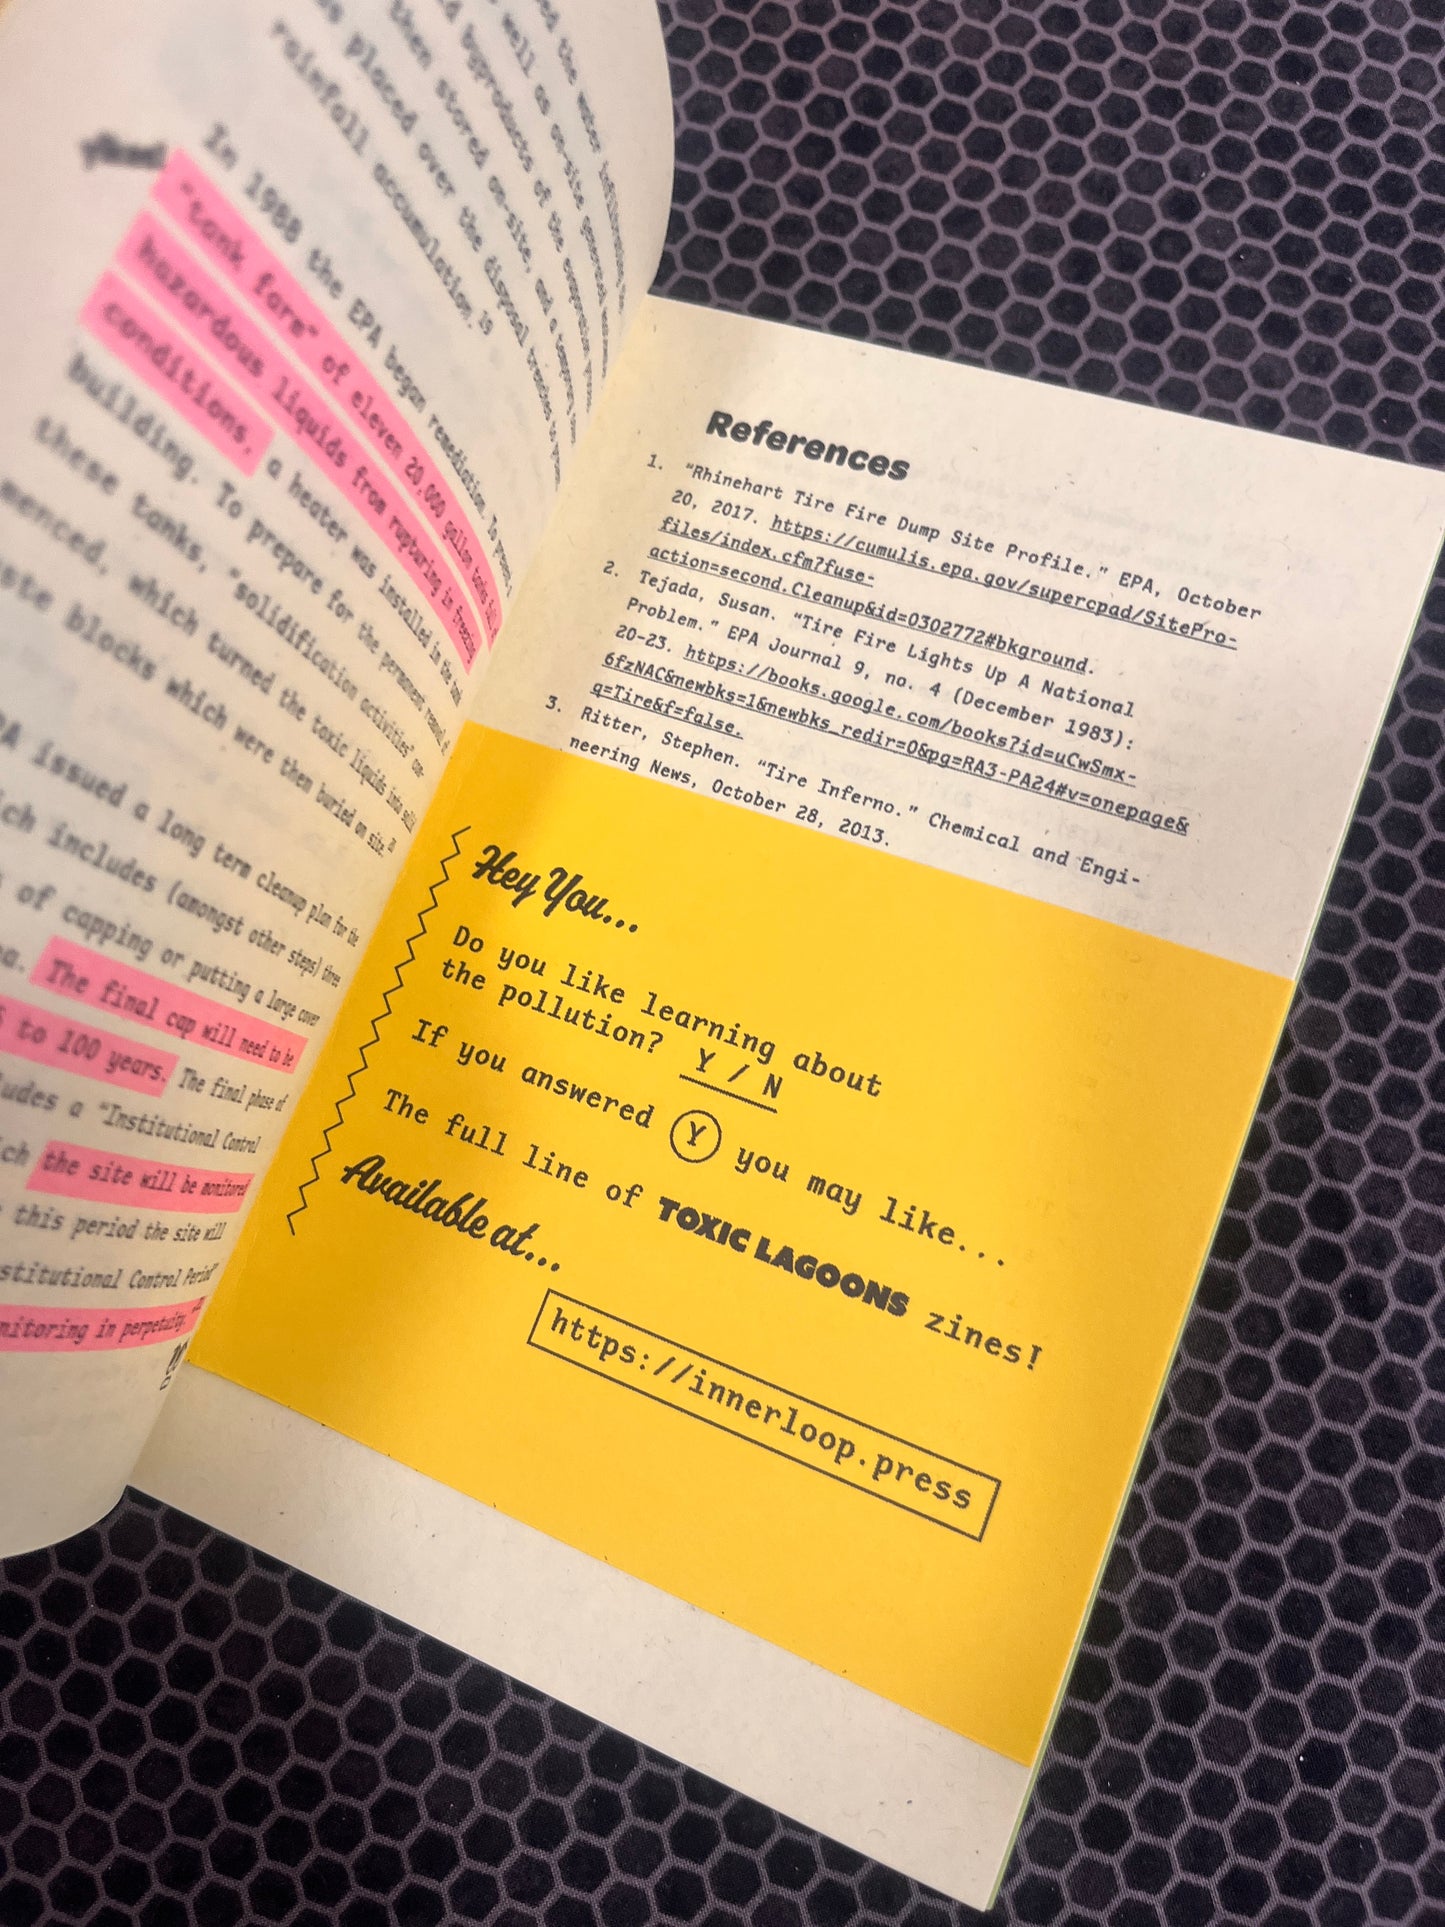 ood the water
well as on-site general
byproducts of the
then stored on-site, and a temporary
placed over the disposal trenches to
rainfall accumulation.19
In 1988 the EPA began remediation. To prevent
"tank farm" of eleven 20,000 gallon tanks full
hazardous liquids from rupturing in freezing
conditions, a heater was installed in the
building. To prepare for the permanent removal of
these tanks, "solidification activities" com-
menced, which turned the toxic liquids into solid
ste blocks which were then buried on site.20
PA issued a long term cleanup plan for the
ich includes (amongst other steps) three
of capping or putting a large cover
a. The final cap will need to be
to 100 years. The final phase of
udes a "Institutional Control
ich the site will be monitored
this period the site will
stitutional Control Period"
nitoring in perpetuity.
References
1. "Rhinehart Tire Fire Dump Site Profile." EPA, October
20, 2017. https://cumulis.epa.gov/supercpad/SitePro-
files/index.cfm?fuse-
action=second.Cleanup&id=0302772#bkground.
2. Tejada, Susan. "Tire Fire Lights Up A National
Problem." EPA Journal 9, no. 4 (December 1983):
20-23. https://books.google.com/books?id=uCwSmx-
6fzNAC&newbks=1&newbks_redir=0&pg=RA3-PA24#v=onepage&
q=Tire&f=false.
3. Ritter, Stephen. "Tire Inferno." Chemical and Engi-
neering News, October 28, 2013.
Hey You...
Do you like learning about
the pollution? Y / N
If you answered Y you may like...
The full line of TOXIC LAGOONS zines!
Available at...
https://innerloop.press